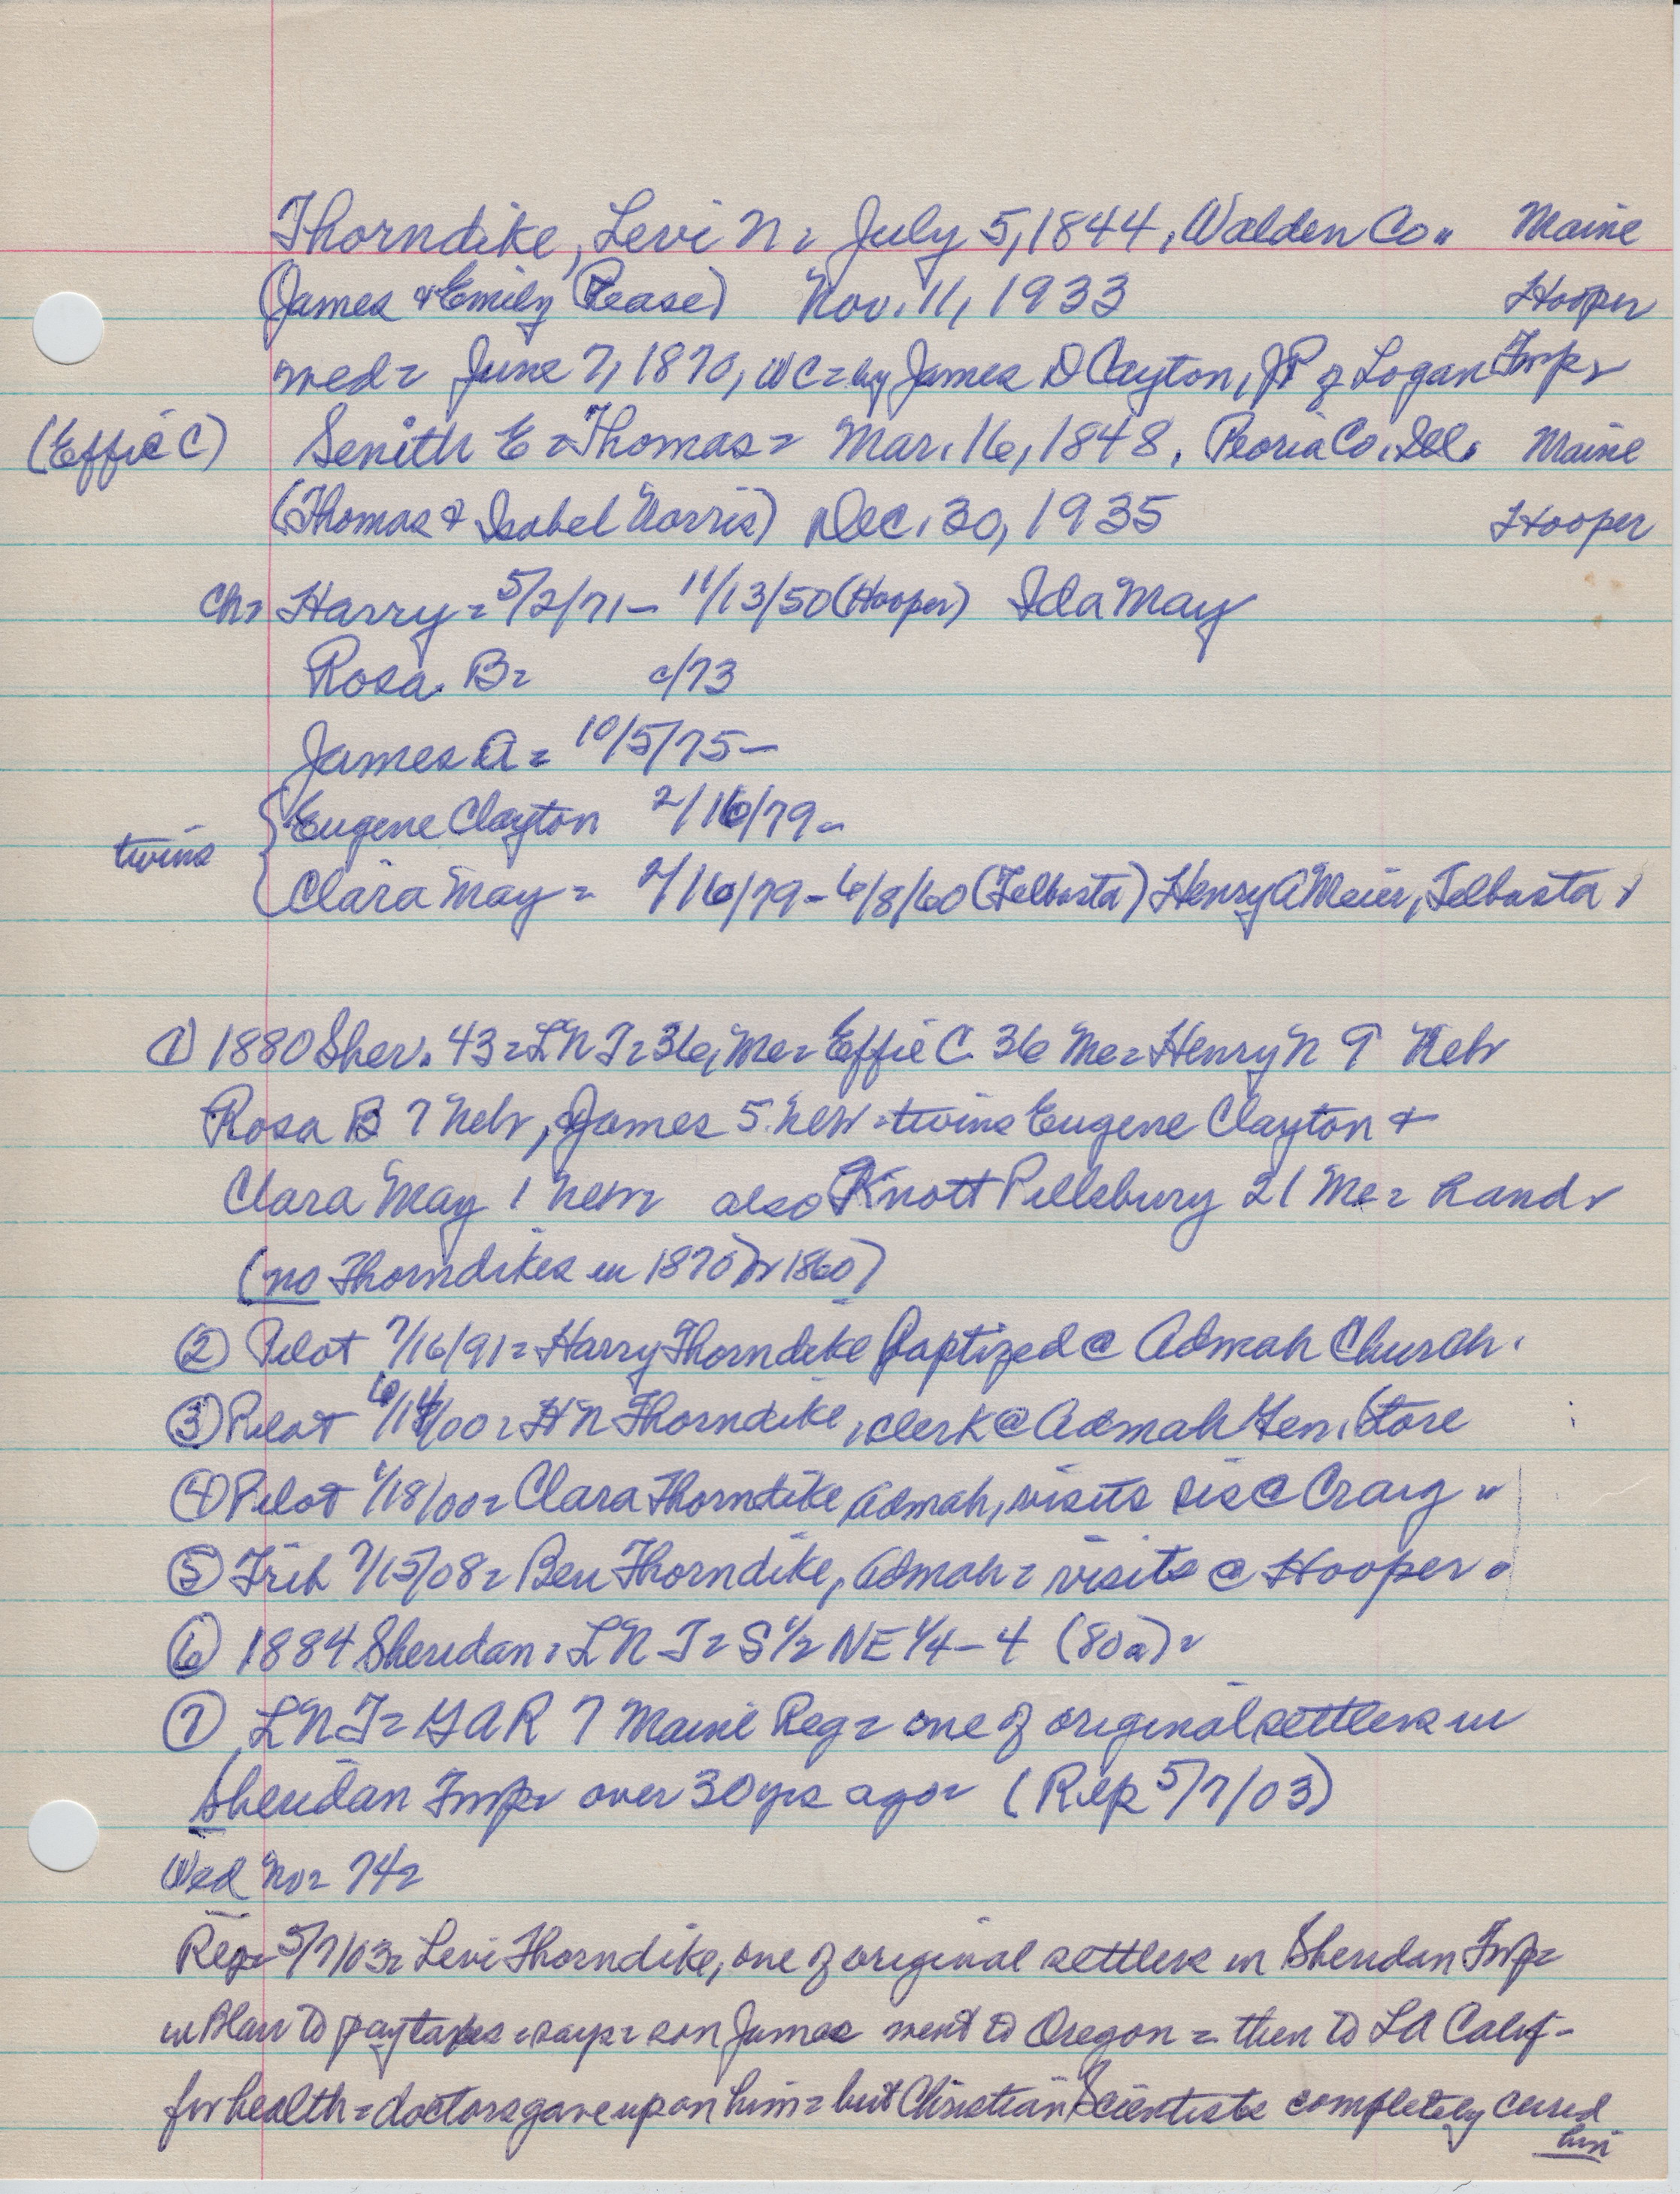 Thorndike, Levi N = July 5, 1844, Walden Co., Maine
(James & Emily Pease) Nov. 11, 1933 Hooper
wed = June 7, 1870, WC = by James D Clayton, JP of Logan Twp.
(Effie C) Senith E = Thomas = Mar. 16, 1848, Peoria Co. Ill. Maine
(Thomas & Isabel Norris) Dec. 30, 1935 Hooper
ch = Harry = 5/2/71 – 11/13/50 (Hooper) Ida May
Rosa B = c/73
James A = 10/5/75 –
twins { Eugene Clayton 2/16/79 –
Clara May = 2/16/79 – 6/8/60 (Telbasta) Henry A Meier, Telbasta
① 1880 Sher. 43 = LNT = 36, Me = Effie C. 36 Me = Henry N 9 Nebr
Rosa B 7 Nebr, James 5 Nebr = twins Eugene Clayton &
Clara May 1 Nebr also Knott Pillsbury 21 Me = hand
(no Thorndikes in 1870 or 1860)
② Pilot 7/16/91 = Harry Thorndike baptized @ Admah Church.
③ Pilot /00 = HN Thorndike, clerk @ Admah Gen. Store
④ Pilot 1/18/00 = Clara Thorndike, Admah, visits sis @ Craig
⑤ Trib 7/15/08 = Ben Thorndike, Admah = visits @ Hooper.
⑥ 1884 Sheridan = LNT = S 1/2 NE 1/4 – 4 (80a) =
⑦ LNT = GAR 7 Maine Reg = one of original settlers in
Sheridan Twp over 30 yrs ago = (Rep 5/7/03)
Wed No = 74 =
Rep = 5/7/03 = Levi Thorndike, one of original settlers in Sheridan Twp =
in Blair to pay taxes = says = son James went to Oregon = then to LA Calif –
for health = doctors gave up on him = but Christian Scientists completely cured
him